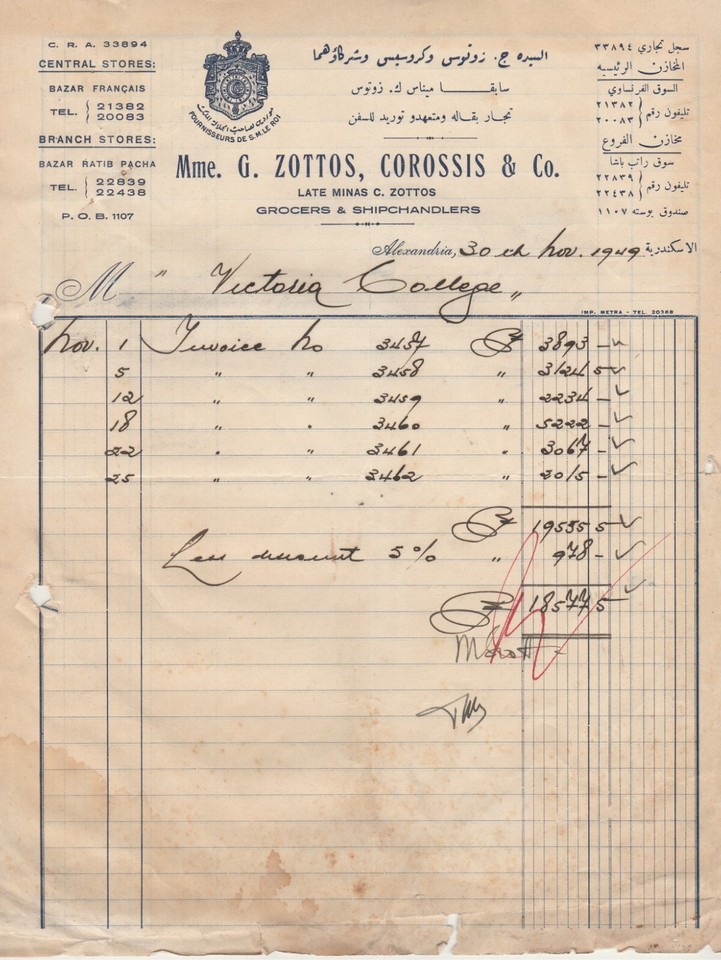 C. R. A. 33894
CENTRAL STORES:
BAZAR FRANÇAIS
TEL. { 21382
20083
BRANCH STORES:
BAZAR RATIB PACHA
TEL. { 22839
22438
P. O. B. 1107
FOURNISSEURS DE S. M. LE ROI
السيده ج. زوتوس وكروسيس وشركاؤهما
سابقا ميناس ك. زوتوس
تجار بقاله ومتعهدو توريد للسفن
Mme. G. ZOTTOS, COROSSIS & Co.
LATE MINAS C. ZOTTOS
GROCERS & SHIPCHANDLERS
سجل تجاري ٣٣٨٩٤
المخازن الرئيسيه
السوق الفرنساوي
تليفون رقم { ٢١٣٨٢
٢٠٠٨٣
مخازن الفروع
سوق راتب باشا
تليفون رقم { ٢٢٨٣٩
٢٢٤٣٨
صندوق بوسته ١١٠٧
Alexandria, 30th Nov. 1949 الاسكندرية
M " Victoria College "
IMP. METRA - TEL. 20368
Nov. 1 Invoice No 3457 3893 -
5 " " 3458 " 3124 5
12 " " 3459 " 2234 -
18 " " 3460 " 5222 -
22 " " 3461 " 3067 -
25 " " 3462 " 2015 -
19555 5
Less discount 5 % " 978 -
18577 5